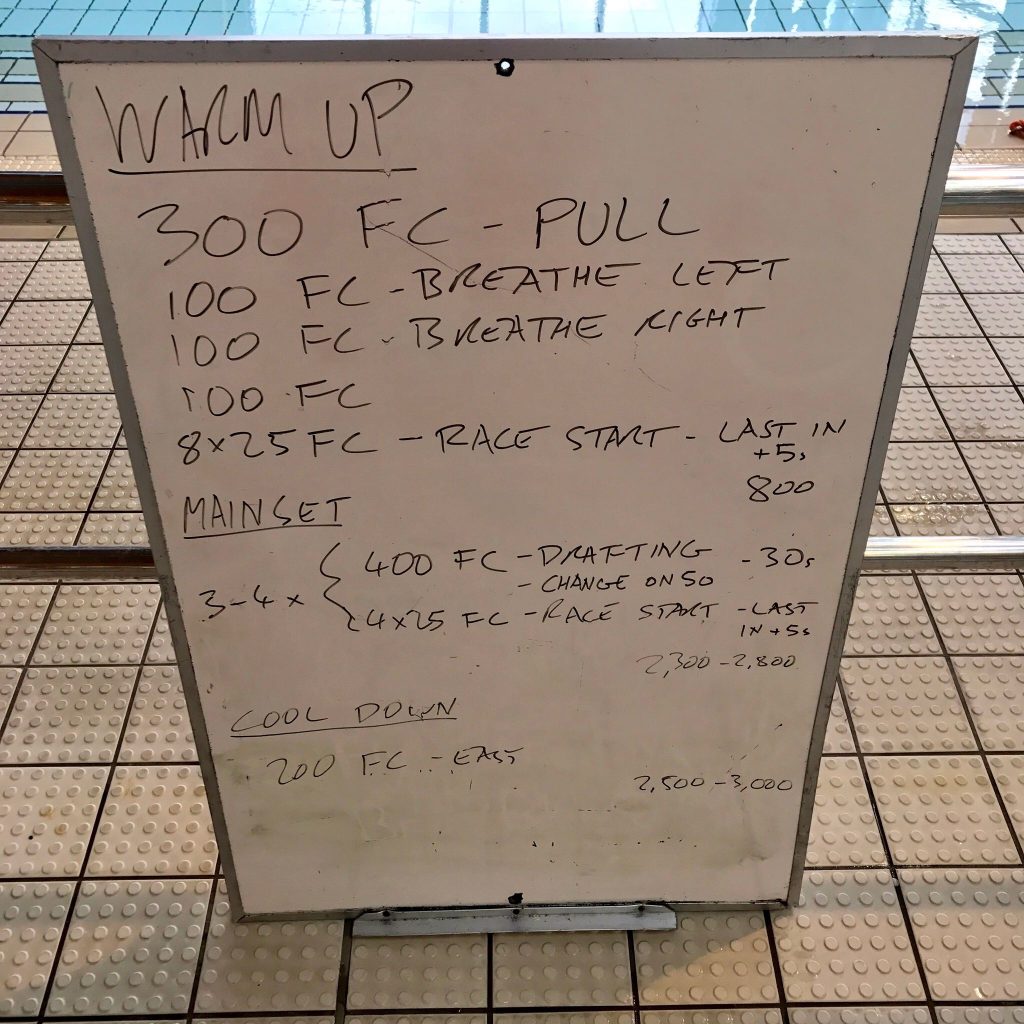 WARM UP
300 FC - PULL
100 FC - BREATHE LEFT
100 FC - BREATHE RIGHT
100 FC
8x25 FC - RACE START - LAST IN
+5s
800
MAINSET
400 FC - DRAFTING - 30s
- CHANGE ON 50
3-4x
4x25 FC - RACE START - LAST
IN +5s
2,300 - 2,800
COOL DOWN
200 FC - EASY
2,500 - 3,000